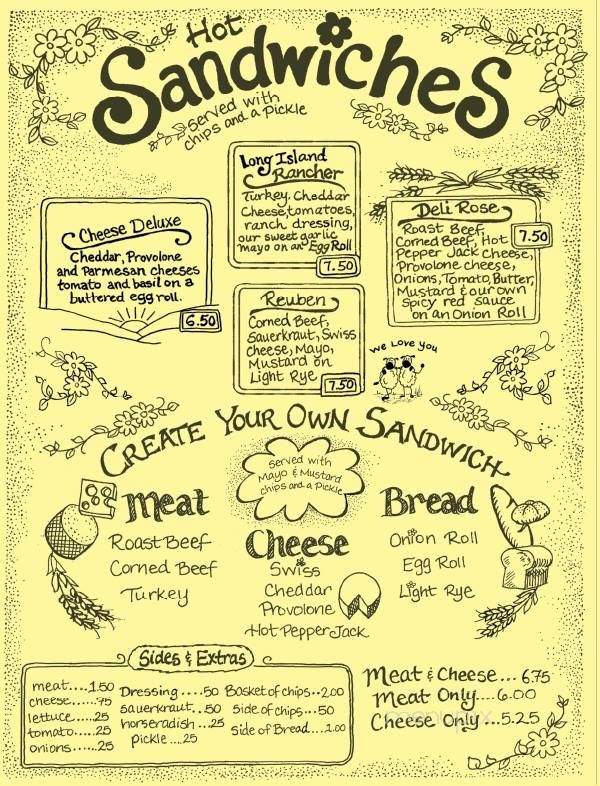 Hot
Sandwiches
served with
chips and a Pickle
Long Island
Rancher
Turkey, Cheddar
Cheese, tomatoes,
ranch dressing,
our sweet garlic
mayo on an Egg Roll
7.50
Cheese Deluxe
Cheddar, Provolone
and Parmesan cheeses
tomato and basil on a
buttered egg roll.
6.50
Deli Rose
Roast Beef,
Corned Beef, Hot
Pepper Jack cheese,
Provolone cheese,
Onions, Tomato, Butter,
Mustard & our own
Spicy red sauce
on an Onion Roll
7.50
Reuben
Corned Beef,
Sauerkraut, Swiss
cheese, Mayo,
Mustard on
Light Rye
7.50
We Love You
CREATE YOUR OWN SANDWICH
served with
Mayo & Mustard
chips and a Pickle
Meat
Roast Beef
Corned Beef
Turkey
Cheese
Swiss
Cheddar
Provolone
Hot Pepper Jack
Bread
Onion Roll
Egg Roll
Light Rye
Sides & Extras
meat....1.50
cheese.....75
lettuce.....25
tomato.....25
onions.....25
Dressing....50
sauerkraut..50
horseradish...25
Pickle....25
Basket of chips..2.00
side of chips...50
side of Bread....1.00
Meat & Cheese... 6.75
Meat Only.... 6.00
Cheese Only...5.25